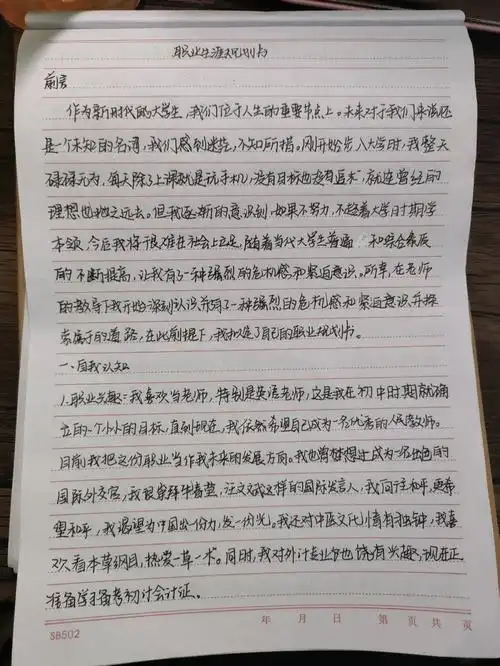 职业生涯规划书
前言
作为新时代的大学生,我们位于人生的重要节点上。未来对于我们来说还
是一个未知的名词,我们感到迷茫,不知所措。刚开始步入大学时,我整天
碌碌无为,每天除了上课就是玩手机,没有目标也没有追求,就连曾经的
理想也抛之远去。但我逐渐的意识到,如果不努力,不趁着大学时期学
本领,今后我将很难在社会上立足,随着当代大学生普遍 和综合素质
的不断提高,让我有了一种强烈的危机感和紧迫意识。所幸,在老师
的教导下我开始深刻认识并有了一种强烈的危机感和紧迫意识并探
索属于的道路,在此前提下,我拟定了自己的职业规划书。
一、自我认知
1.职业兴趣:我喜欢当老师,特别是英语老师,这是我在初中时期就确
立的一个小小的目标,直到现在,我依然希望自己成为一名优秀的人民教师。
目前我把这份职业当作我未来的发展方向。我也曾梦想过成为一名出色的
国际外交官,我很崇拜华春莹,汪文斌这样的国际发言人,我向往和平,更希
望和平,我渴望为中国出一份力,发一份光。我还对中医文化情有独钟,我喜
欢看本草纲目,热爱一草一术。同时,我对会计专业也饶有兴趣,现在正
准备学习备考初级会计证。
SB502
年 月 日 第 页 共 页